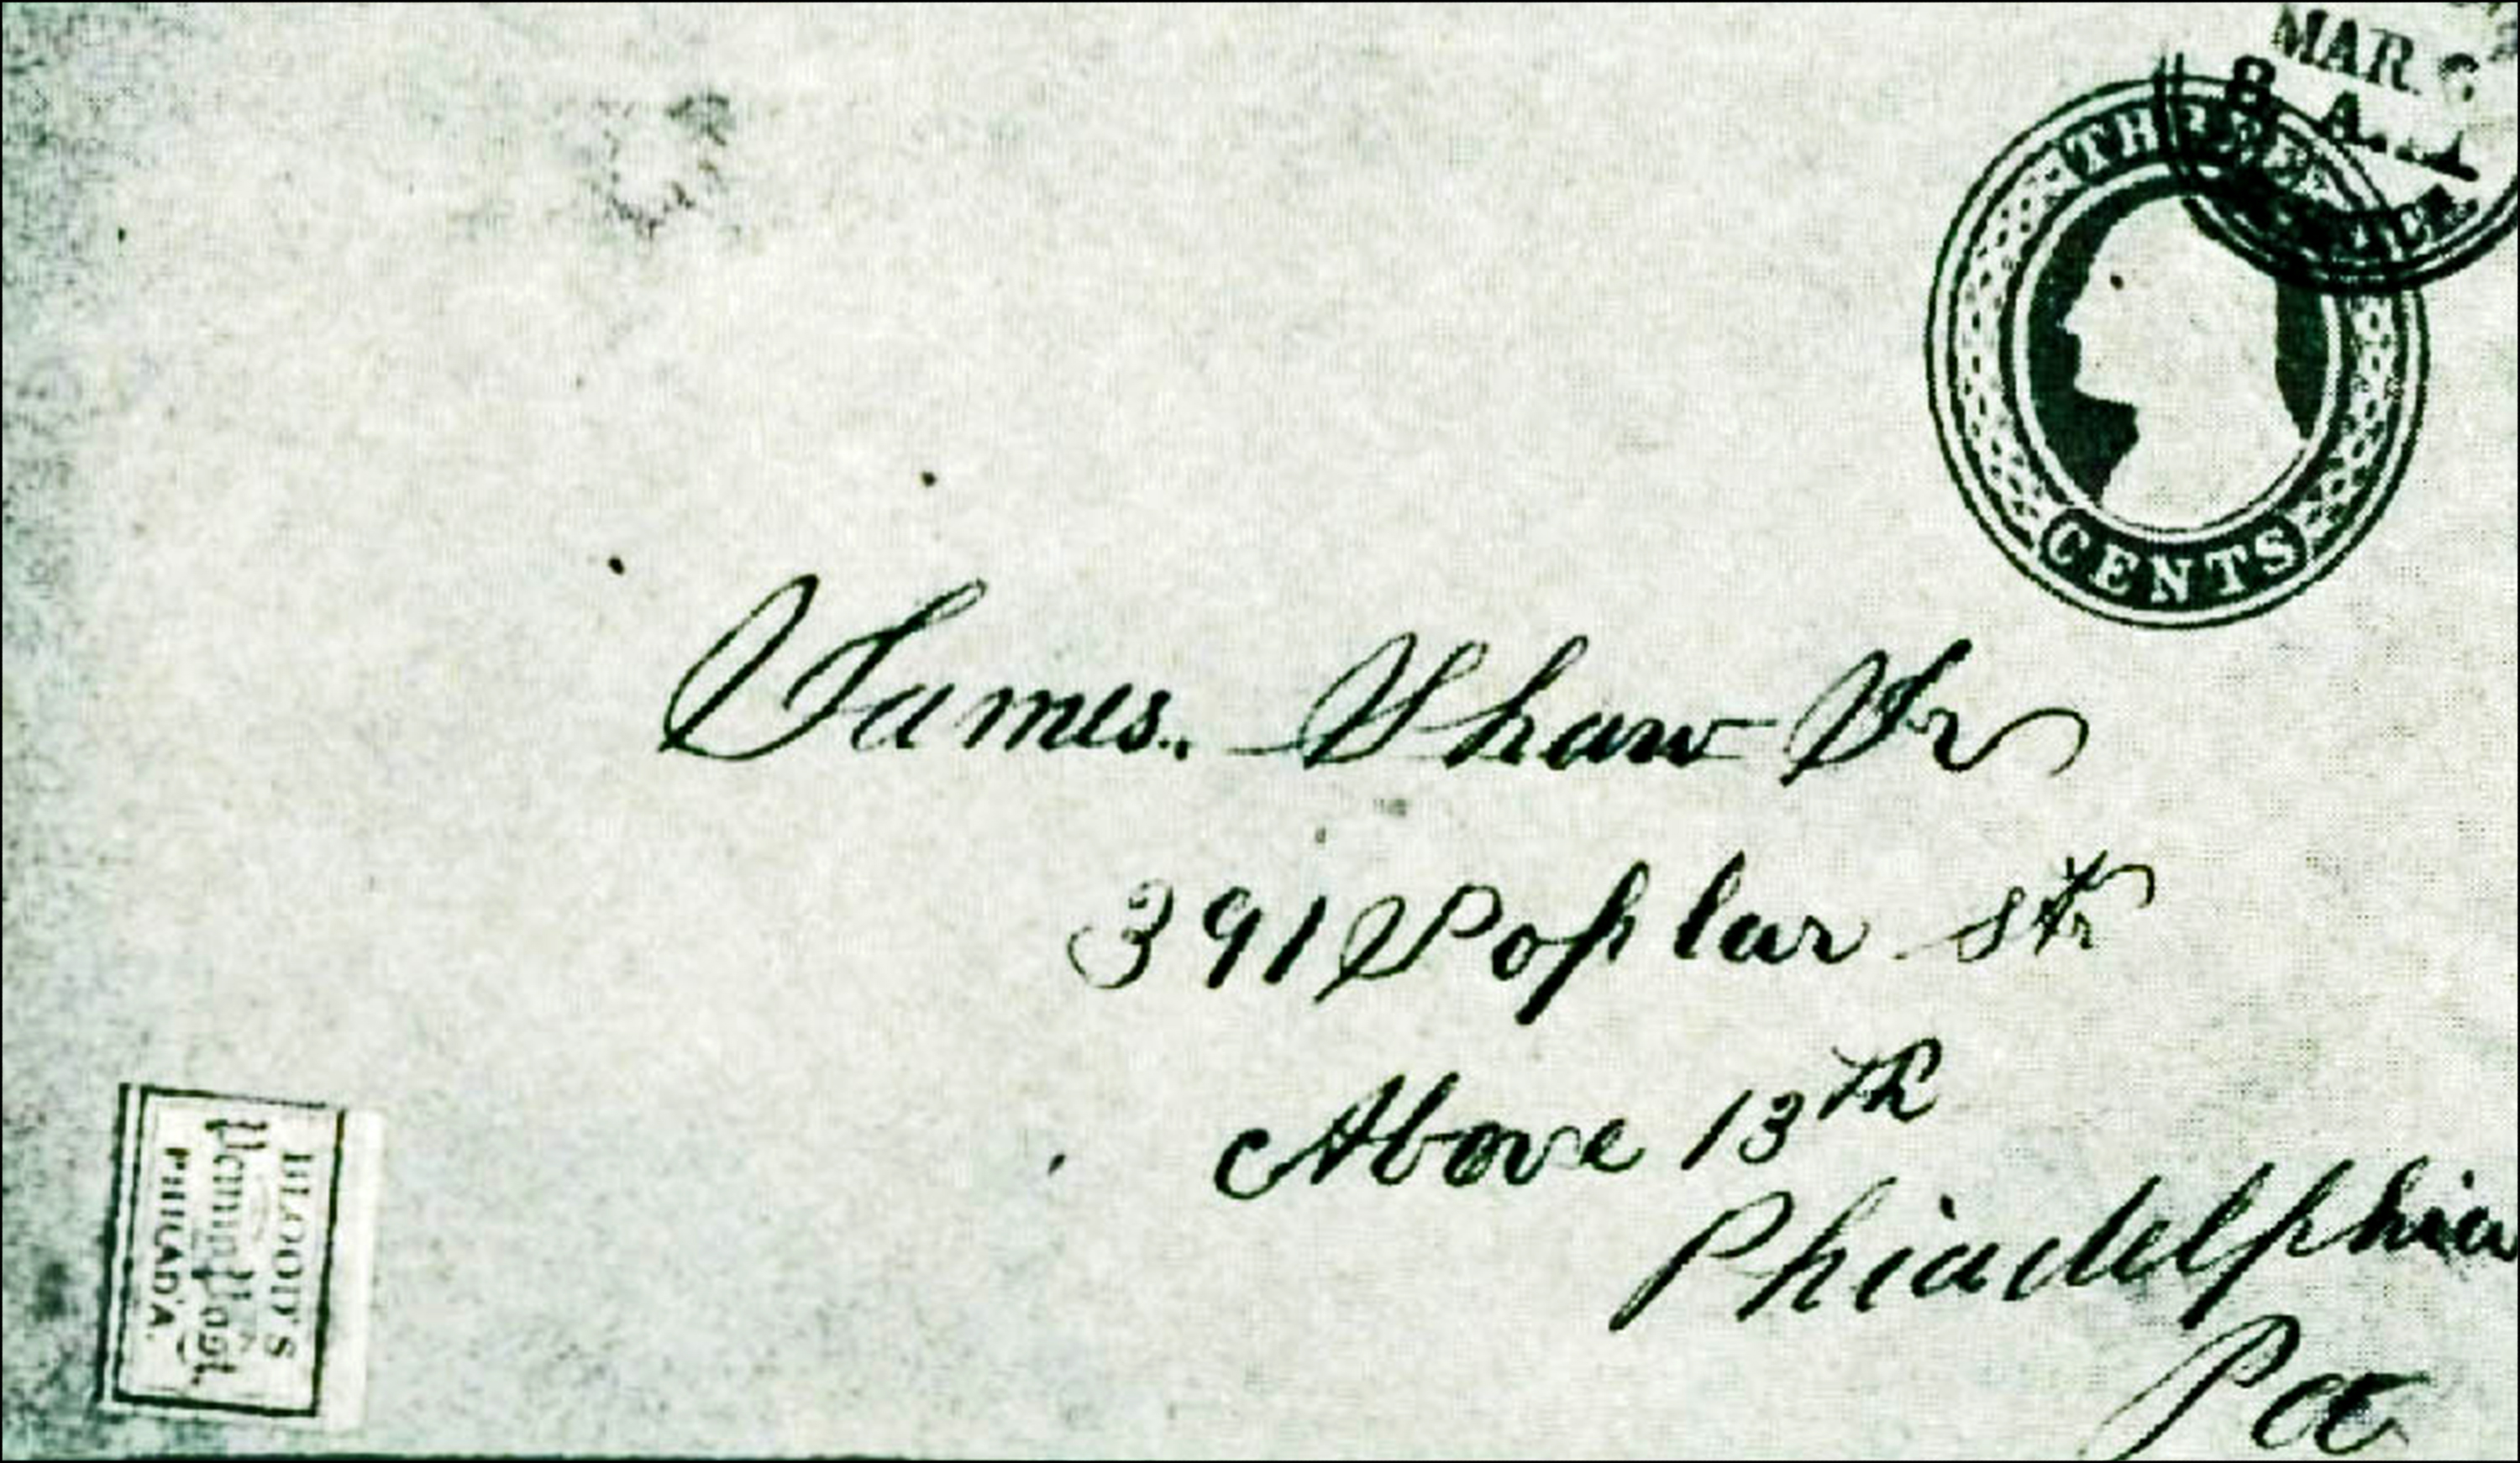 MAR
8 A
THREE
CENTS
James. Shaw Jr
391 Poplar str
Above 13th
Phiadelphia
Pa
BLOOD'S
Penny Post
PHILAD'A.